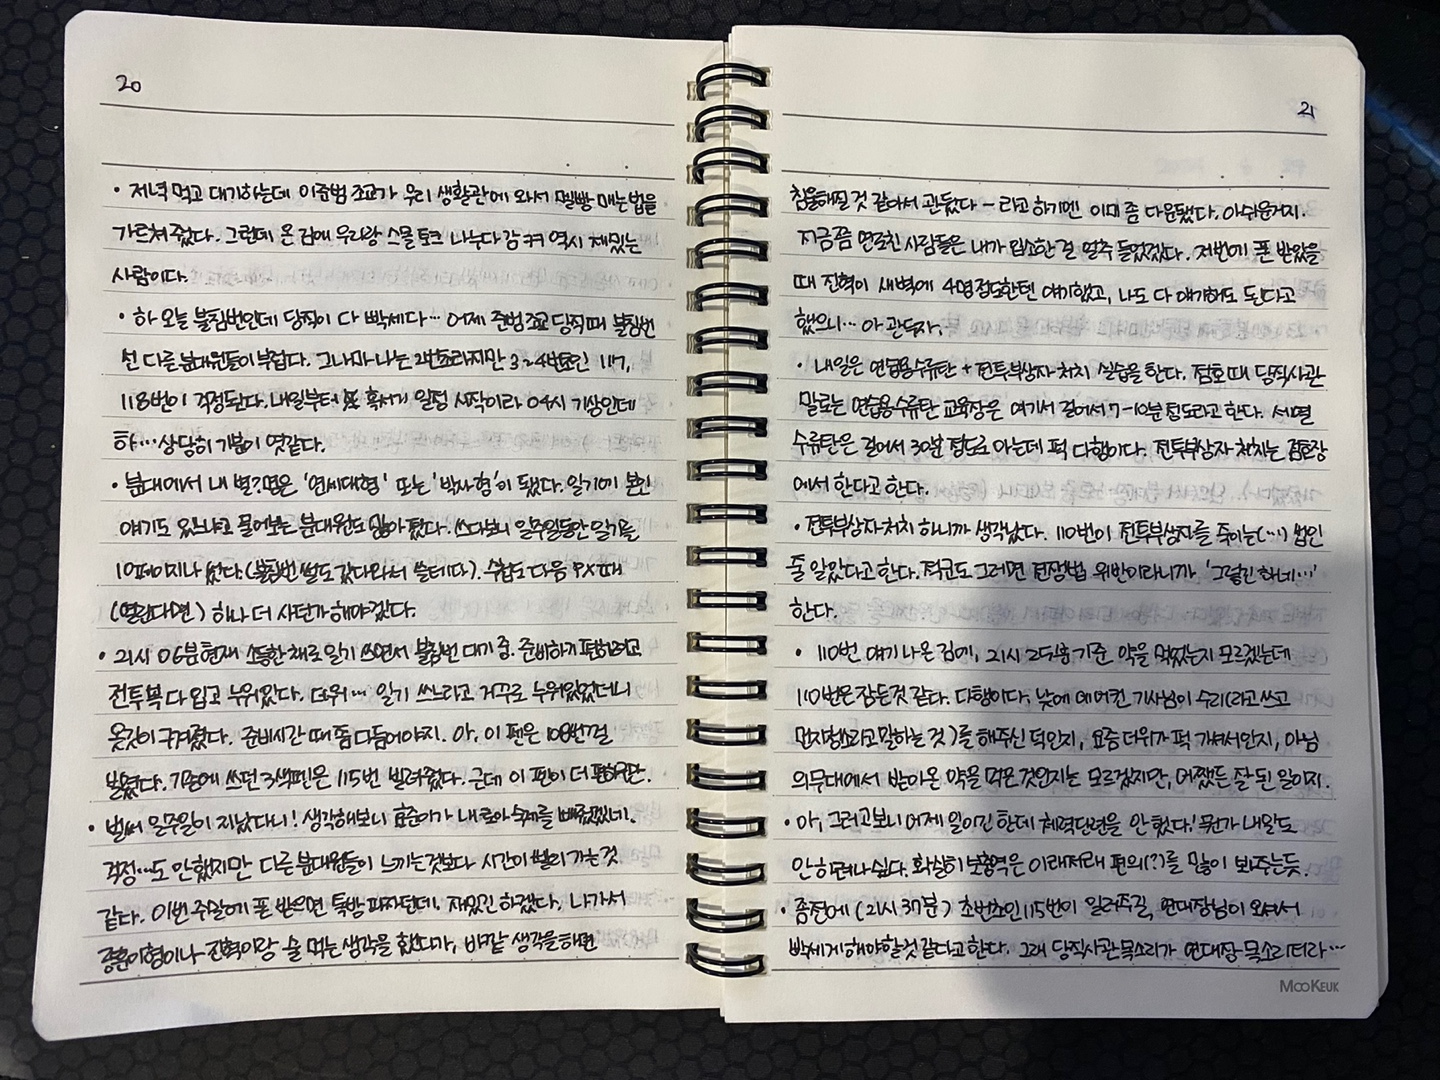 20
• 저녁 먹고 대기하는데 이준범 조교가 우리 생활관에 와서 멜빵 매는 법을
가르쳐 줬다. 그런데 온 김에 우리랑 스몰토크 나누다 감 ㅋㅋ 역시 재밌는
사람이다.
• 하 오늘 불침번인데 당직이 다 빡세다… 어제 준범조교 당직때 불침번
선 다른 분대원들이 부럽다. 그나마 나는 2번초라지만 3 2 4번초인 117,
118번이 걱정된다. 내일부터 혹서기 일정 시작이라 04시 기상인데
하… 상당히 기분이 엿같다.
• 분대에서 내 별명은 '연세대형' 또는 '박사형'이 됐다. 일기에 본인
얘기도 있냐고 물어보는 분대원도 많아졌다. 쓰다보니 일주일동안 일기를
10페이지나 썼다 (불침번 썰도 갔다와서 쓸테다). 수첩도 다음 PX때
(열린다면) 하나 더 사던가 해야겠다.
• 21시 06분 현재 소등한 채로 일기 쓰면서 불침번 대기 중. 준비하기 편하려고
전투복 다 입고 누워있다. 더워… 일기 쓰느라고 거꾸로 누워있었더니
옷깃이 구겨졌다. 준비시간 때 좀 다듬어야지. 아, 이 펜은 108번걸
빌렸다. 기존에 쓰던 3색펜은 115번 빌려줬다. 근데 이 펜이 더 편하구만.
• 벌써 일주일이 지났다니! 생각해보니 효준이가 내 로아 숙제를 빼줬겠네.
걱정…도 안했지만 다른 분대원들이 느끼는것보다 시간이 빨리 가는것
같다. 이번 주말에 폰 받으면 톡방 파자던데. 재밌긴 하겠다. 나가서
경훈이형이나 진혁이랑 술 먹는 생각을 했다가, 바깥 생각을 하면
21
침울해질 것 같아서 관뒀다 - 라고 하기엔 이미 좀 다운됐다. 아쉬운거지.
지금쯤 연락친 사람들은 내가 입소한 걸 얼추 들었겠다. 저번에 폰 받았을
때 진혁이 새벽에 4명정도한텐 얘기했고, 나도 다 얘기해도 된다고
했으니… 아 관두자.
• 내일은 연습용수류탄 + 전투부상자처치 실습을 한다. 점호 때 당직사관
말로는 연습용수류탄 교육장은 여기서 걸어서 7-10분 정도라고 한다. 세열
수류탄은 걸어서 30분 정도로 아는데 퍽 다행이다. 전투부상자 처치는 점호장
에서 한다고 한다.
• 전투부상자처치 하니까 생각났다. 110번이 전투부상자를 죽이는(…) 법인
줄 알았다고 한다. 적군도 그러면 전쟁법 위반이라니까 '그렇긴 하네…'
한다.
• 110번 얘기 나온 김에, 21시 25분 기준 약을 먹었는지 모르겠는데
110번은 잠든것 같다. 다행이다. 낮에 에어컨 기사님이 수리(라고 쓰고
먼지청소라고 말하는 것)를 해주신 덕인지, 요즘 더위가 퍽 가셔서인지, 아님
의무대에서 받아온 약을 먹은 것인지는 모르겠지만, 어쨌든 잘 된 일이지.
• 아, 그러고보니 어제 일이긴 한데 체력단련을 안 했다! 뭔가 내일도
안 하려나 싶다. 확실히 보충역은 이래저래 편의(?)를 많이 봐주는듯.
• 좀전에 (21시 37분) 초번초인 115번이 일러주길, 연대장님이 오셔서
빡세게 해야할것 같다고 한다. 그래 당직사관 목소리가 연대장 목소리더라…
MOOKEUK